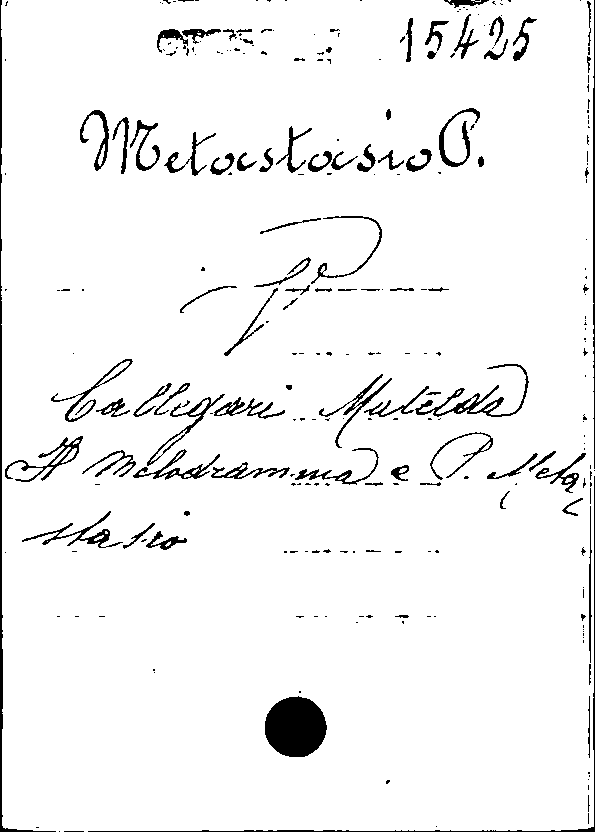 15425
Metastasio P.
Callegari Matelda
Il Melodramma e P. Meta,
stasio